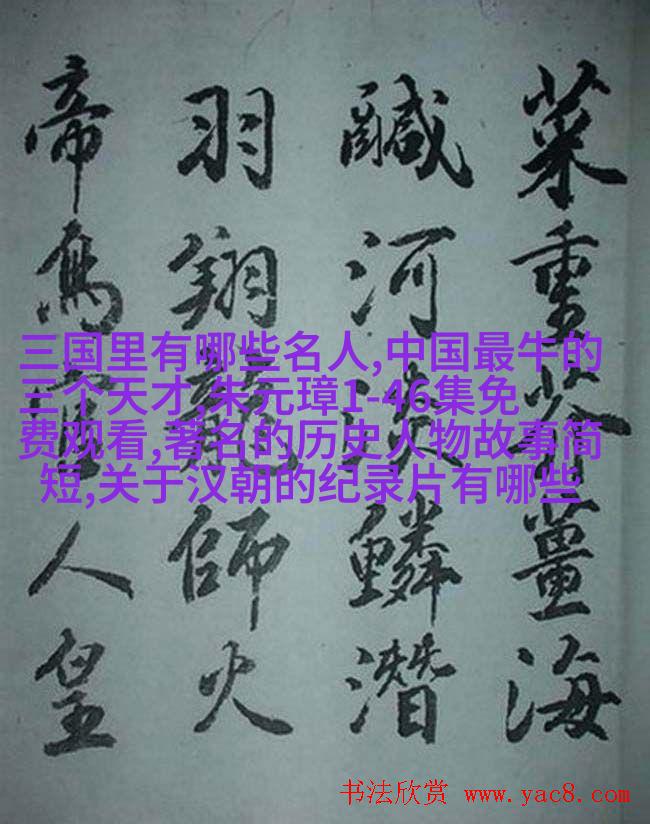 菜重芥薑海
鹹河淡鱗潛
羽翔龍師火
帝鳥官人皇
三国里有哪些名人,中国最牛的
三个天才,朱元璋1-46集免
费观看,著名的历史人物故事简
短,关于汉朝的纪录片有哪些
书法欣赏 www.yac8.com